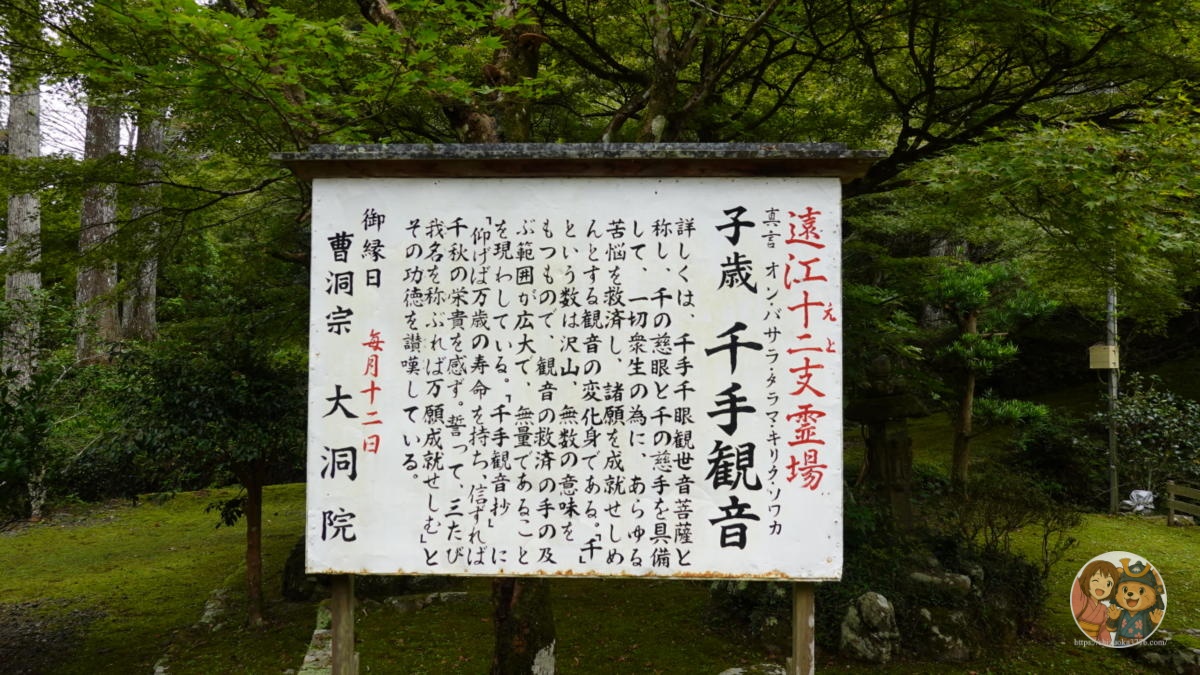 遠江十二支霊場
えと
真言 オン・バサラ・タラマ・キリタ・ソワカ
子歳 千手観音
詳しくは、千手千眼観世音菩薩と
称し、千の慈眼と千の慈手を具備
して、一切衆生の為に、あらゆる
苦悩を救済し、諸願を成就せしめ
んとする観音の変化身である。「千」
という数は沢山、無数の意味を
もつもので、観音の救済の手の及
ぶ範囲が広大で、無量であること
を現わしている。「千手観音抄」に
「仰げば万歳の寿命を持ち、信ずれば
千秋の栄貴を感ず。誓って、三たび
我名を称ぶれば万願成就せしむ」と
その功徳を讃嘆している。
御縁日 毎月十二日
曹洞宗 大洞院